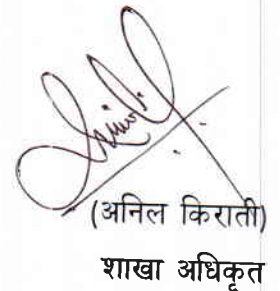 (अनिल किराती)
शाखा अधिकृत